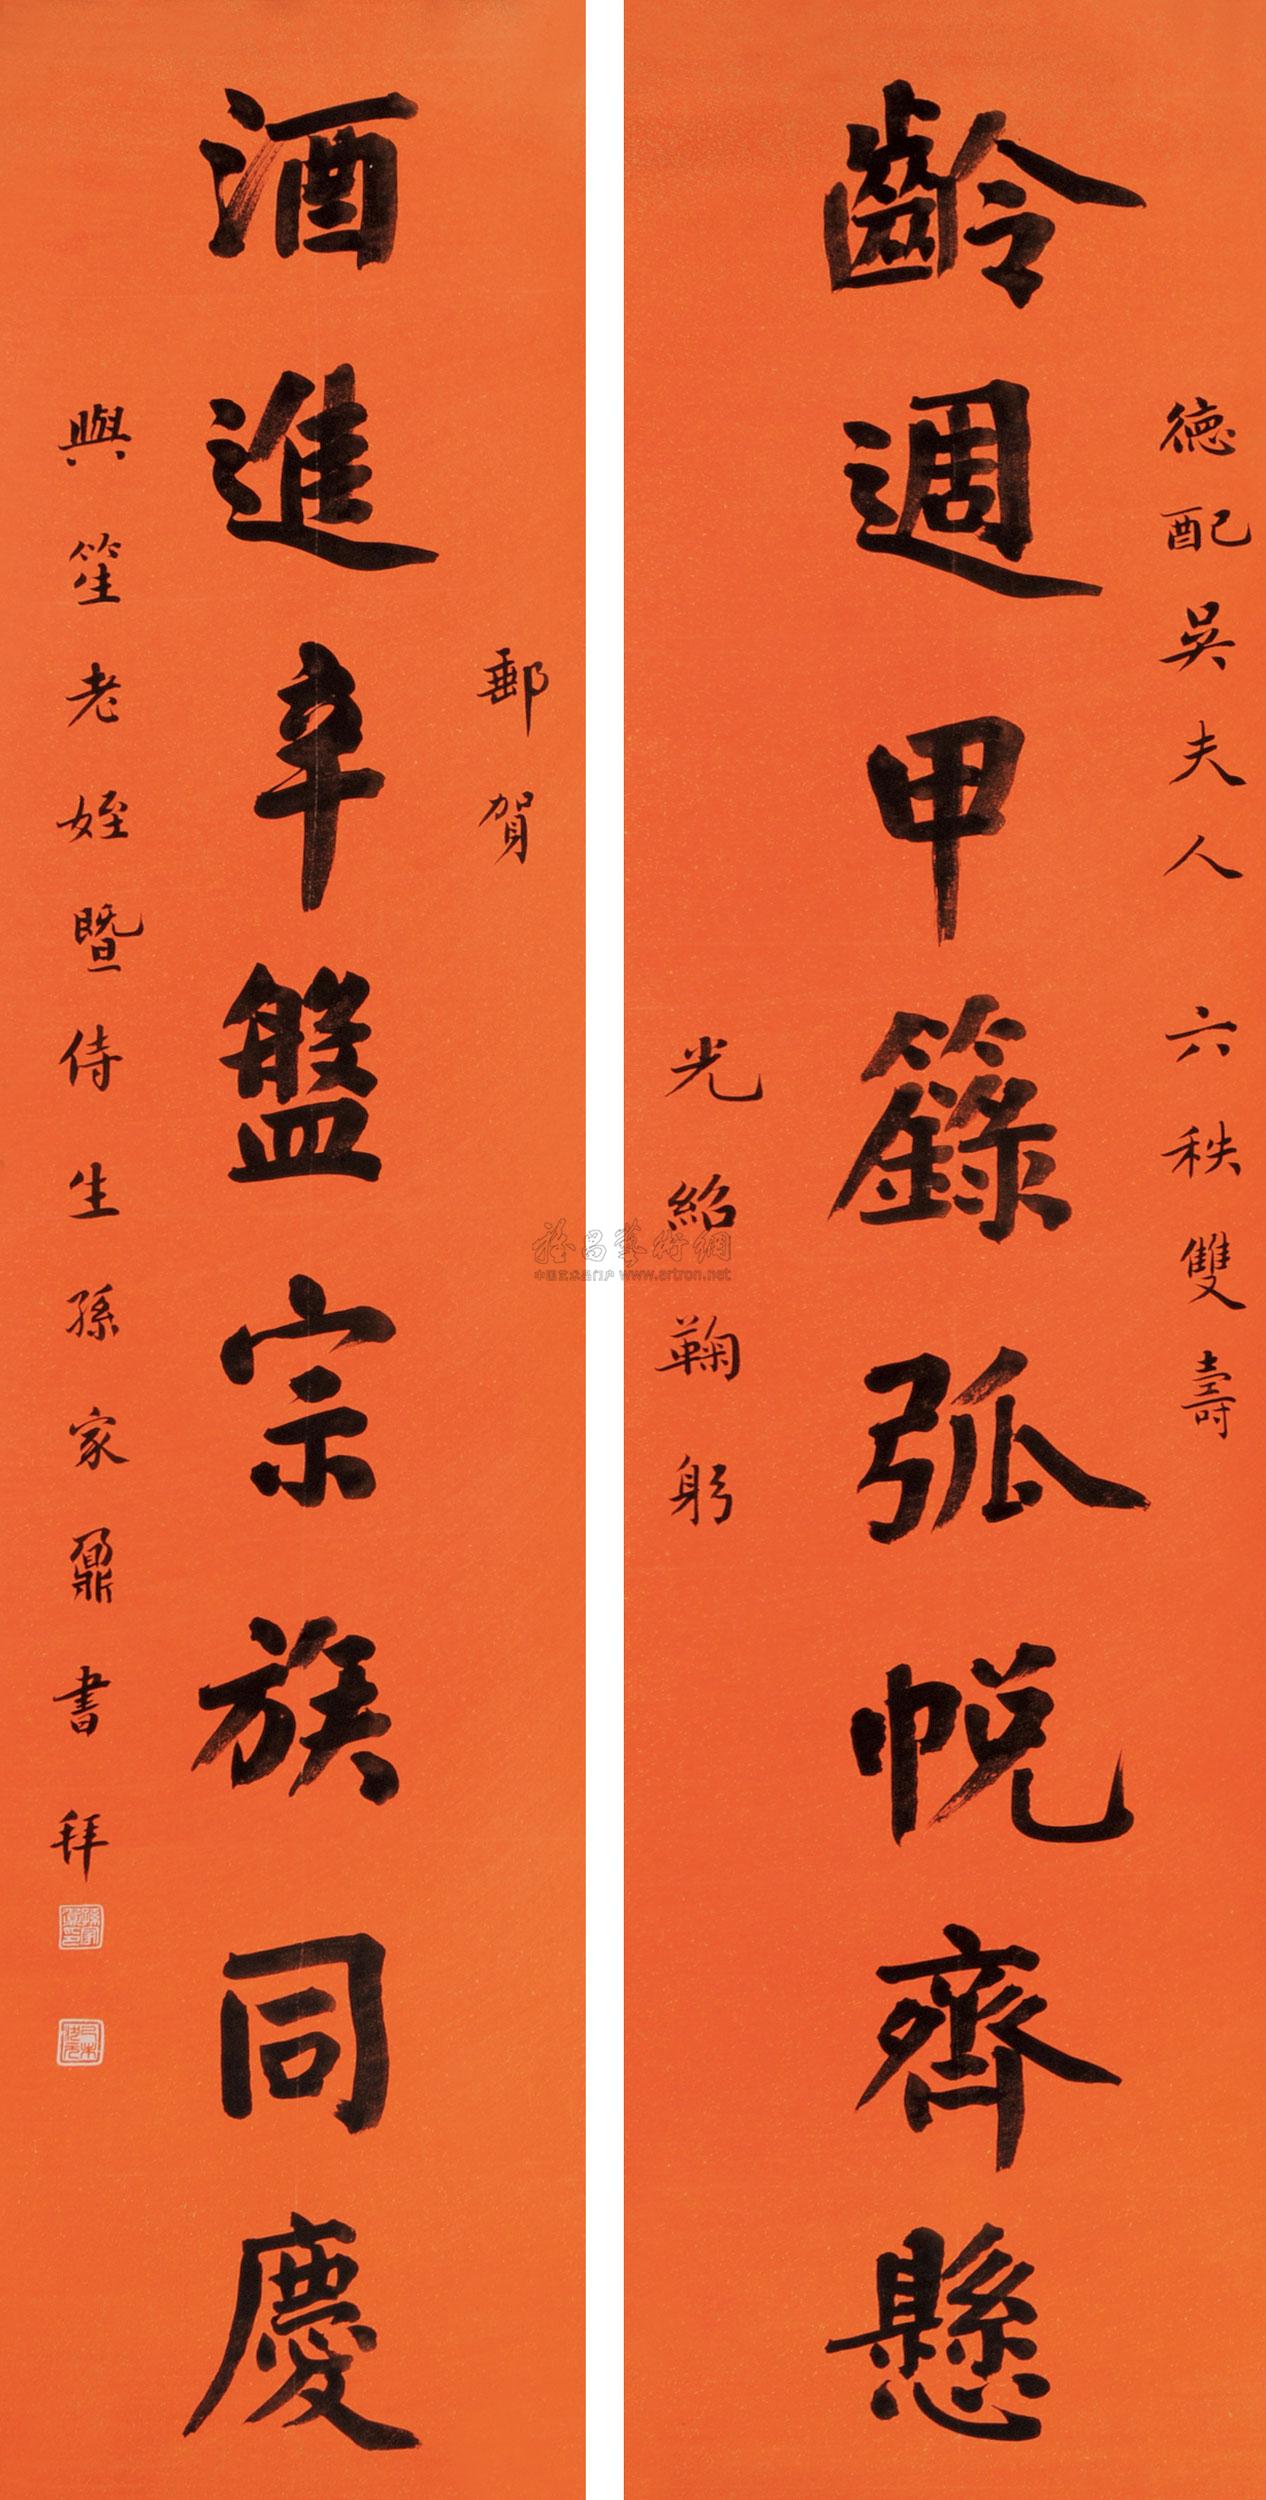 德配吳夫人六秩雙壽
齡週甲籙弧帨齊懸
光紹鞠躬
郵賀
酒進辛盤宗族同慶
與笙老姪暨侍生孫家鼐書拜
中国艺术品门户 www.artron.net